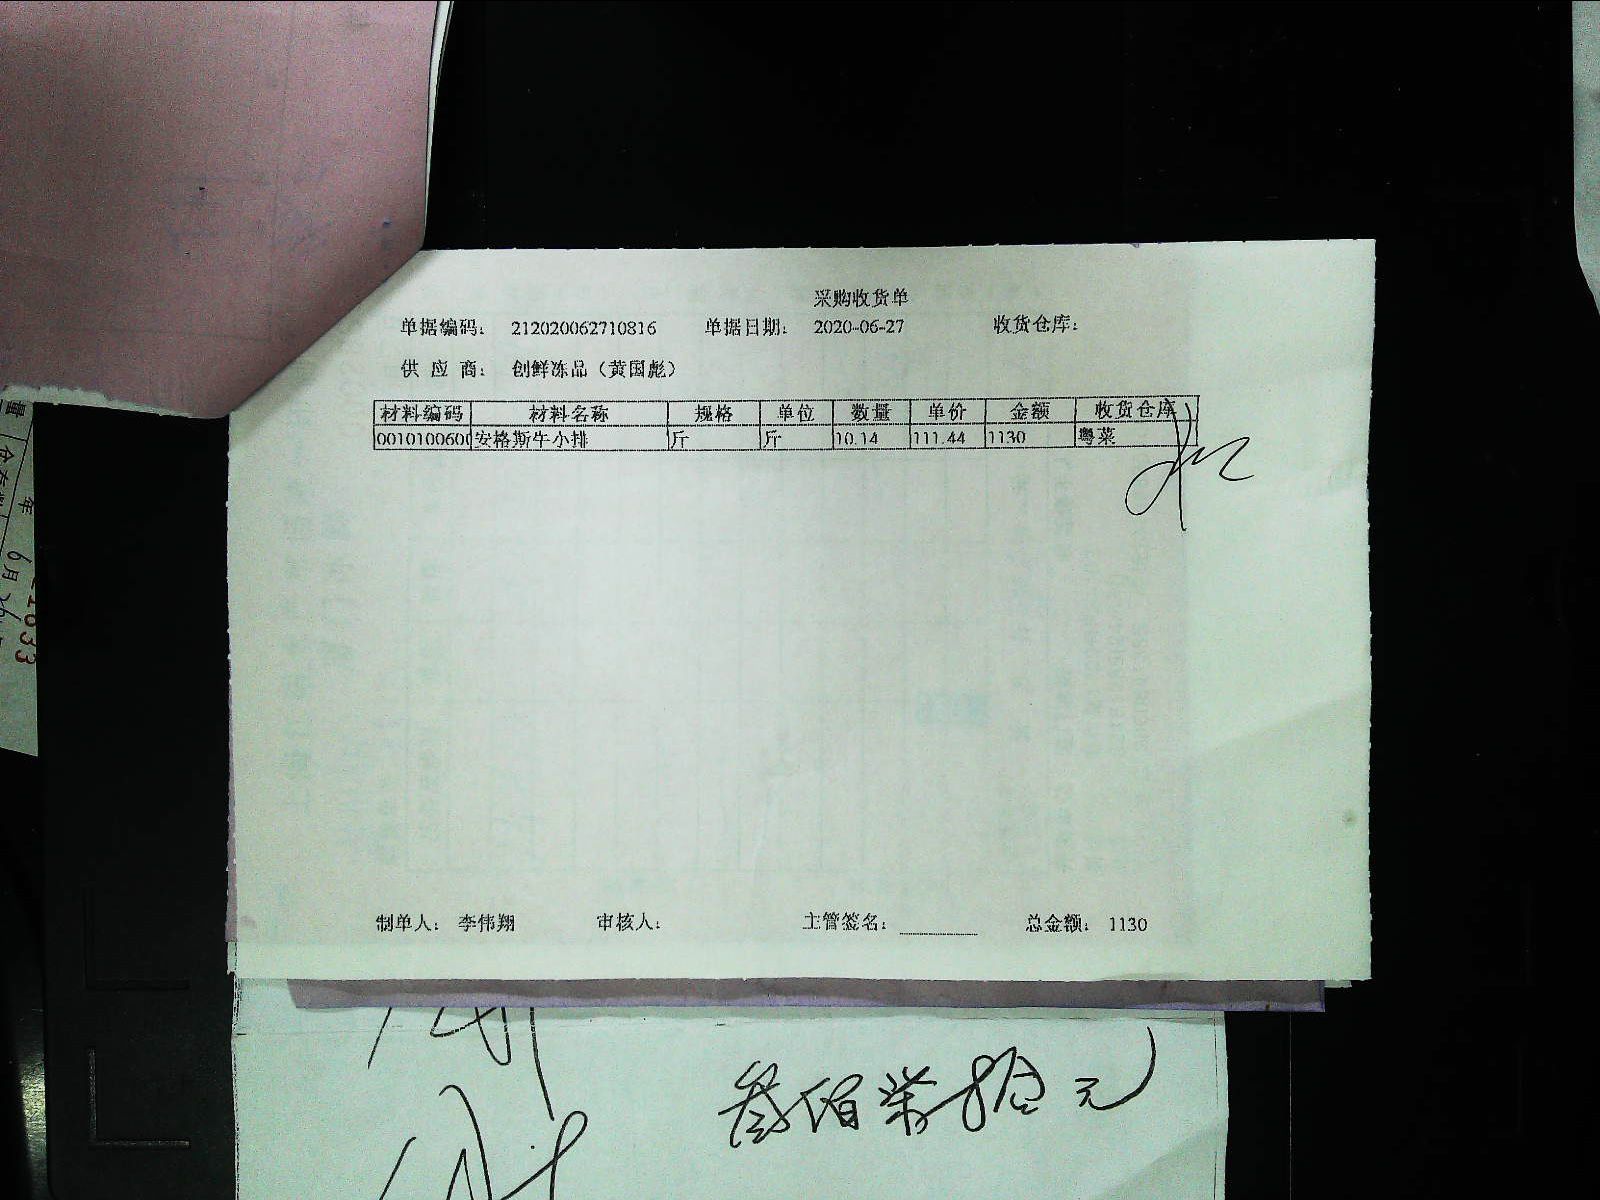 采购收货单
单据编码： 212020062710816 单据日期： 2020-06-27 收货仓库：
供 应 商： 创鲜冻品（黄国彪）
材料编码 材料名称 规格 单位 数量 单价 金额 收货仓库
0010100600 安格斯牛小排 斤 斤 10.14 111.44 1130 粤菜
制单人： 李伟翔 审核人： 主管签名： 总金额： 1130
叁佰柒拾元
年
6月26
21633